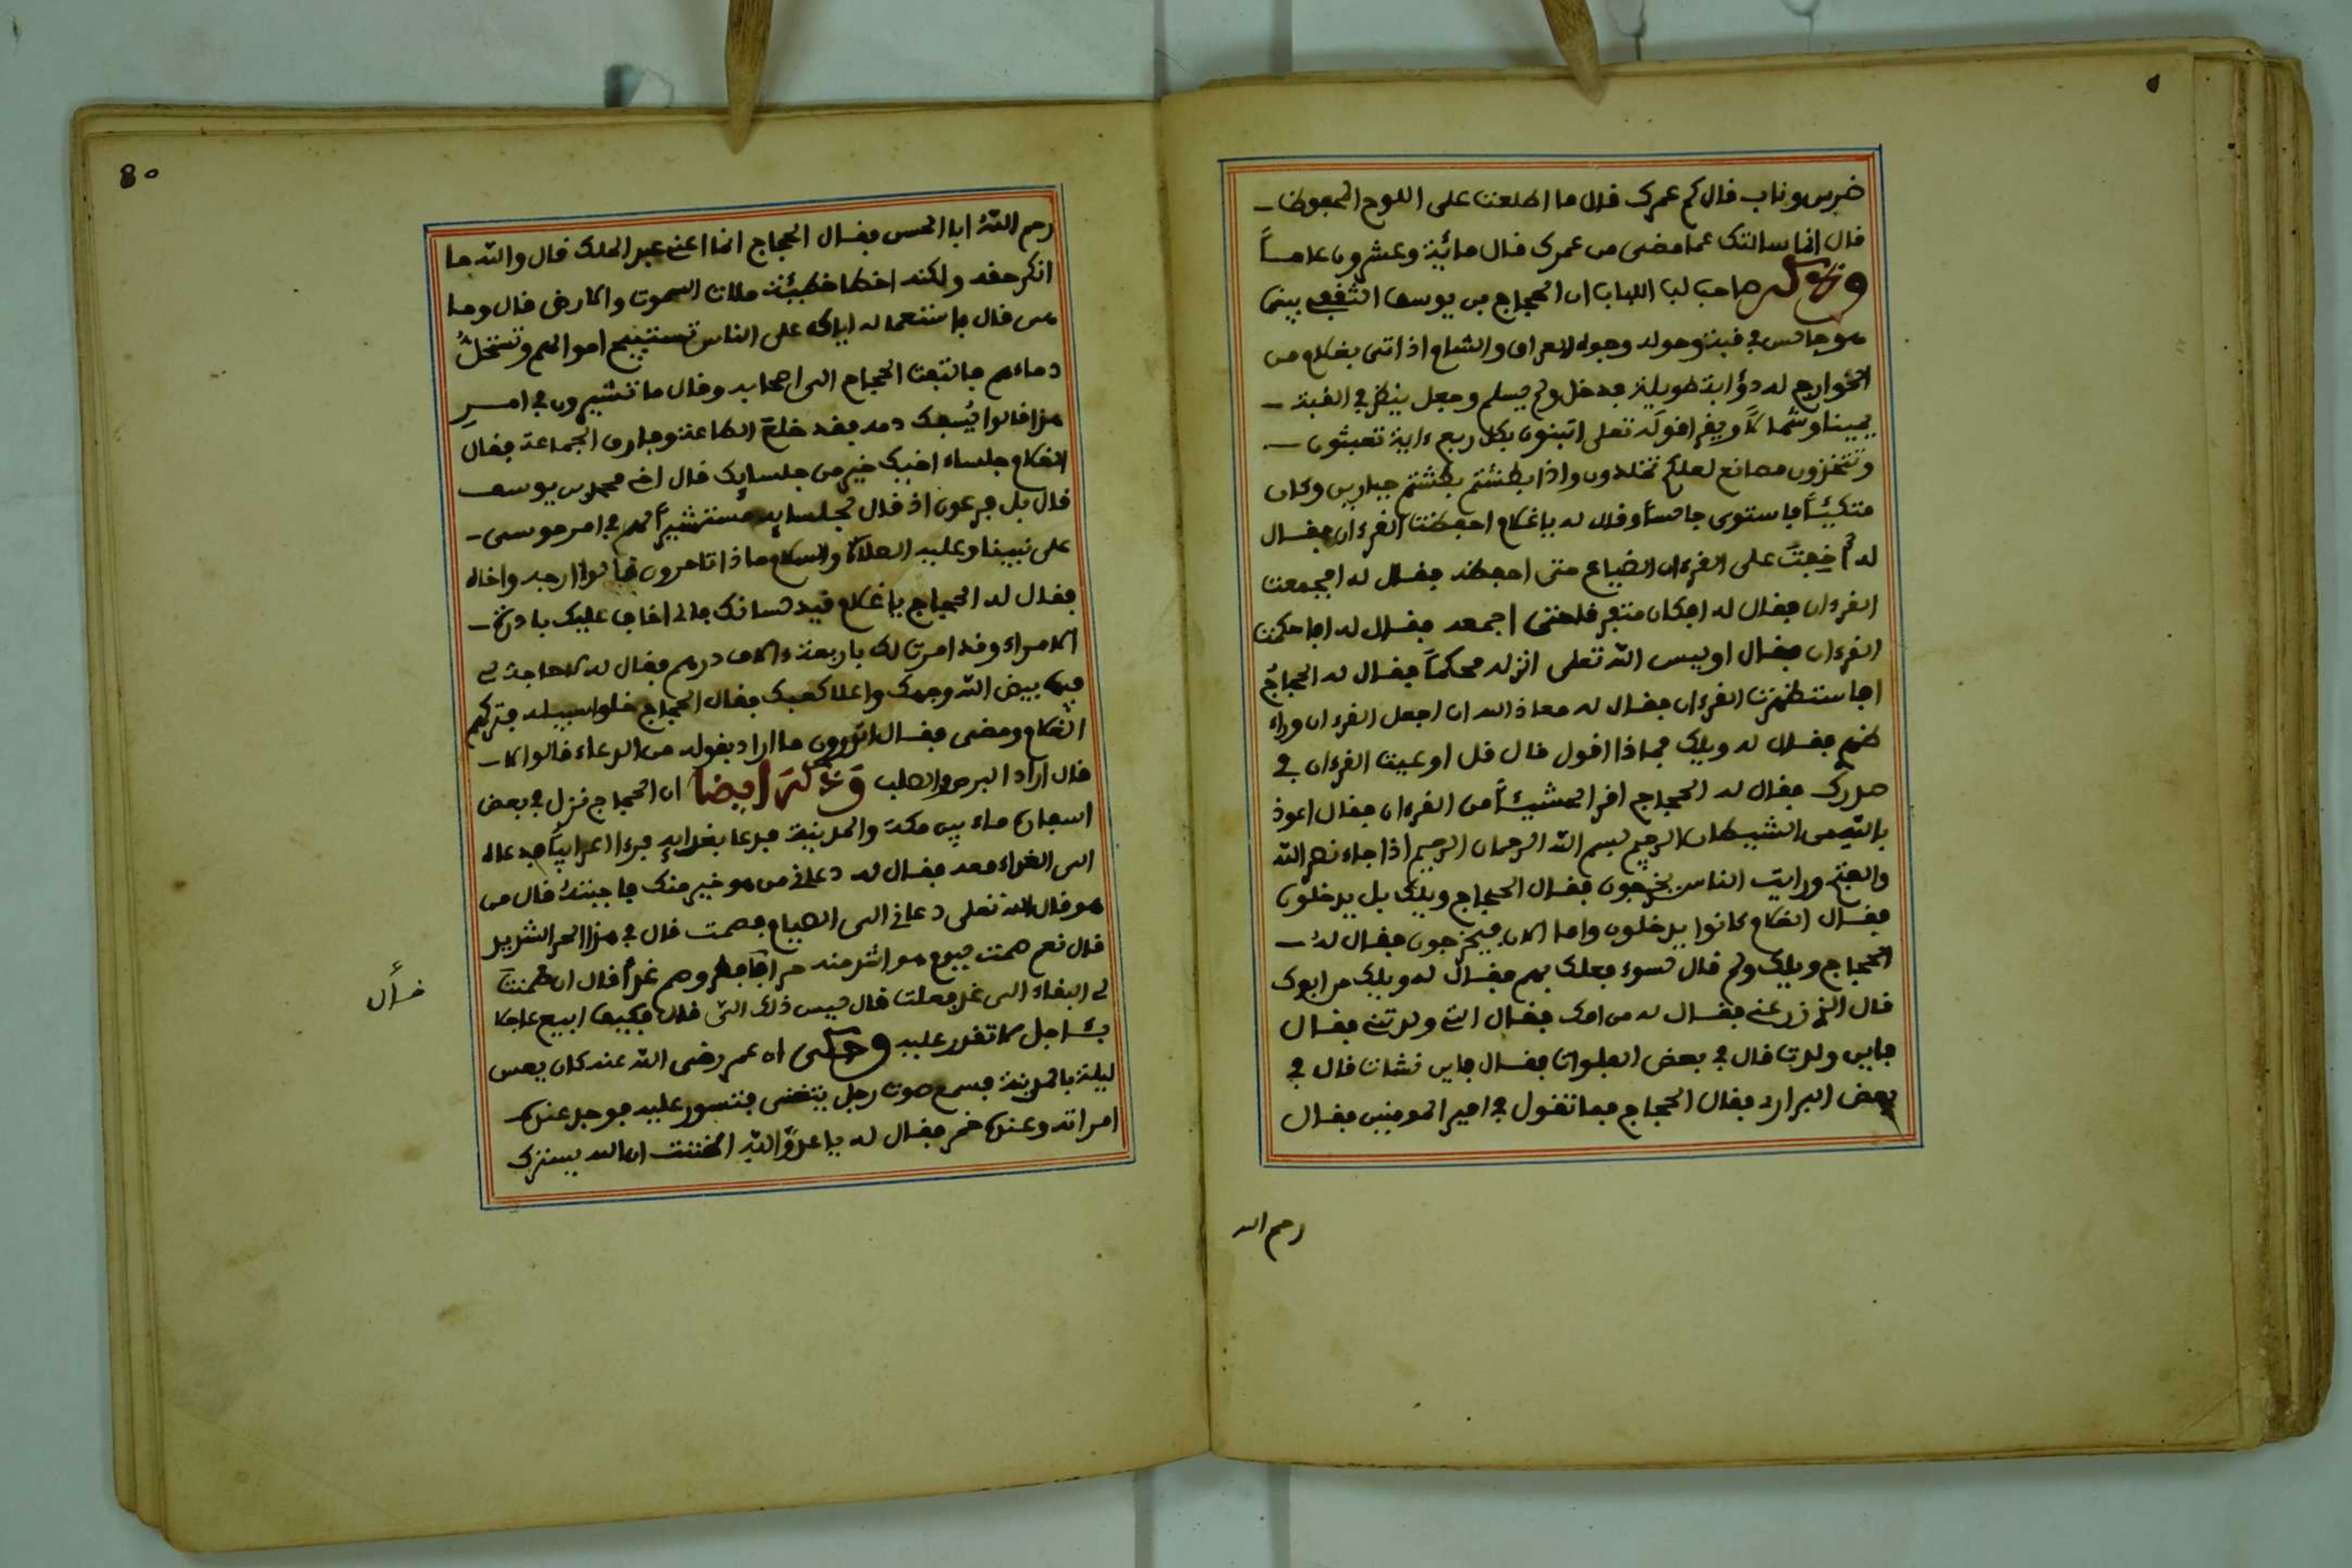 ضرس وناب قال كم عمرك قال ما اطلعت على اللوح المحفوظ
قال انما سالتك عما مضى من عمرك فقال مائة وعشرون عاماً
صاحب لب اللباب ان الحجاج بن يوسف الثقفي بينما
هو جالس في قبته وحوله وجوه العراق والشام اذ اتى بغلام من
الخوارج له ذؤابة طويلة فدخل ولم يسلم وجعل ينظر في القبة
يمينا وشمالاً ويقرا قوله تعلى اتبنون بكل ريع ءاية تعبثون
وتتخذون مصانع لعلكم تخلدون واذا بطشتم بطشتم جبارين وكان
متكيئاً فاستوى جالساً وقال له يا غلام احفظت القرءان فقال
له أخفت على القرءان الضياع حتى احفظه فقال له افجمعت
القرءان فقال له افكان متفرقا حتى اجمعه فقال له افاحكمت
القرءان فقال اوليس الله تعلى انزله محكماً فقال له الحجاج
افاستظهرت القرءان فقال له معاذ الله ان اجعل القرءان وراء
ظهري فقال له ويلك فماذا اقول قال قل اوعيت القرءان في
صدرك فقال له الحجاج اقرا شيئاً من القرءان فقال اعوذ
بالله من الشيطان الرجيم بسم الله الرحمان الرحيم اذا جاء نصر الله
والفتح ورايت الناس يخرجون فقال الحجاج ويلك بل يدخلون
فقال الغلام كانوا يدخلون واما الان فيخرجون فقال له
الحجاج ويلك ولم قال لسوء فعلك بهم فقال له ويلك من ابوك
قال الذي زرعني فقال له من امك فقال التي ولدتني فقال
فاين ولدت قال في بعض الفلوات فقال فاين نشات قال في
بعض البراري فقال الحجاج فما تقول في امير المومنين فقال
رحم الله
80
رحم اللهُ ابا الحسن فقال الحجاج انما اعني عبد الملك قال والله ما
انكر حقه ولكنه اخطا خطيئة ملات السموت والارض قال وما
هي قال باستعماله اياك على الناس تستبيح اموالهم وتستحلُّ
دماءهم فالتفت الحجاج الى اصحابه وقال ما تشيرون في امرِ
هذا قالوا يُسفك دمه فقد خلع الطاعة وفارق الجماعة فقال
الغلام جلساء اخيك خير من جلسايك قال اخي محمد بن يوسف
قال بل فرعون اذ قال لجلسايه مستشيراً لهم في امر موسى
على نبينا وعليه الصلاة والسلام ماذا تامرون قالوا ارجه واخاه
فقال له الحجاج يا غلام قيد لسانك فاني اخاف عليك بادرة
الامراء وقد امرت لك باربعة ءالاف درهم فقال له لا حاجة لي
فيها بيض الله وجهك واعلا كعبك فقال الحجاج خلوا سبيله فتركهم
الغلام ومضى فقال اتدرون ما اراد بقوله من الدعاء قالوا لا
قال اراد البرص والصلب وَعَنْهُ أيضا ان الحجاج نزل في بعض
اسفاره ماء بين مكة والمدينة فدعا بغدايه فرءا اعرابياً فدعاه
الى الغداء معه فقال له دعاني من هو خير منك فاجبتهُ قال من
هو قال الله تعلى دعاني الى الصيام فصمت قال في هذا الحر الشديد
قال نعم صمت ليوم هو اشد منه حراً قال افطر وصم غداً قال ان ضمنت
لي البقاء الى غد فعلت قال ليس ذلك الي قال فكيف ابيع عاجلا
باجل لا تقدر عليه وحكى ان عمر رضى الله عنه كان يعس
ليلة بالمدينة فسمع صوت رجل يتغنى فتسور عليه فوجد عنده
امراته وعنده خمر فقال له يا عدوَّ اللهِ اظننت ان الله يسترك